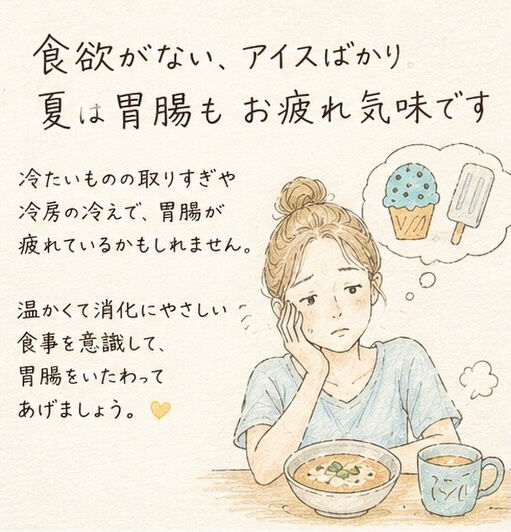 食欲がない、アイスばかり。
夏は胃腸も お疲れ気味です
冷たいものの取りすぎや
冷房の冷えで、胃腸が
疲れているかもしれません。
温かくて消化にやさしい
食事を意識して、
胃腸をいたわって
あげましょう。